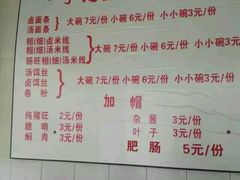 卤面条
汤面条
大碗 7元/份 小碗 6元/份 小小碗3元/份
粗(细)卤米线
粗(细)汤米线
肠旺粗(细)汤米线
大碗 7元/份 小碗 6元/份 小小碗3元/份
汤饵丝
卤饵丝
卷粉
大碗 7元/份 小碗 6元/份 小小碗3元/份
加 帽
纯猪旺 2元/份
脆哨 3元/份
焖肉 3元/份
杂酱 3元/份
叶子 3元/份
肥肠 5元/份